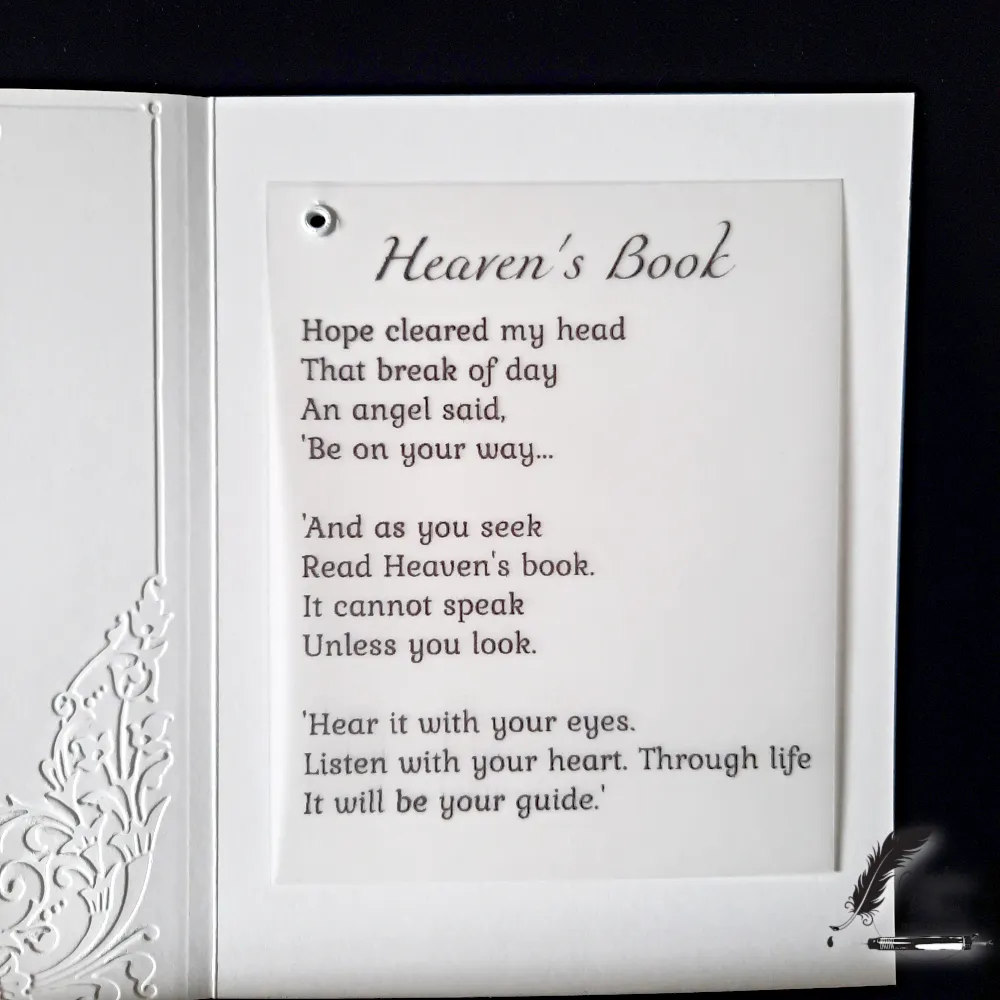 Heaven's Book
Hope cleared my head
That break of day
An angel said,
'Be on your way...
'And as you seek
Read Heaven's book.
It cannot speak
Unless you look.
'Hear it with your eyes.
Listen with your heart. Through life
It will be your guide.'